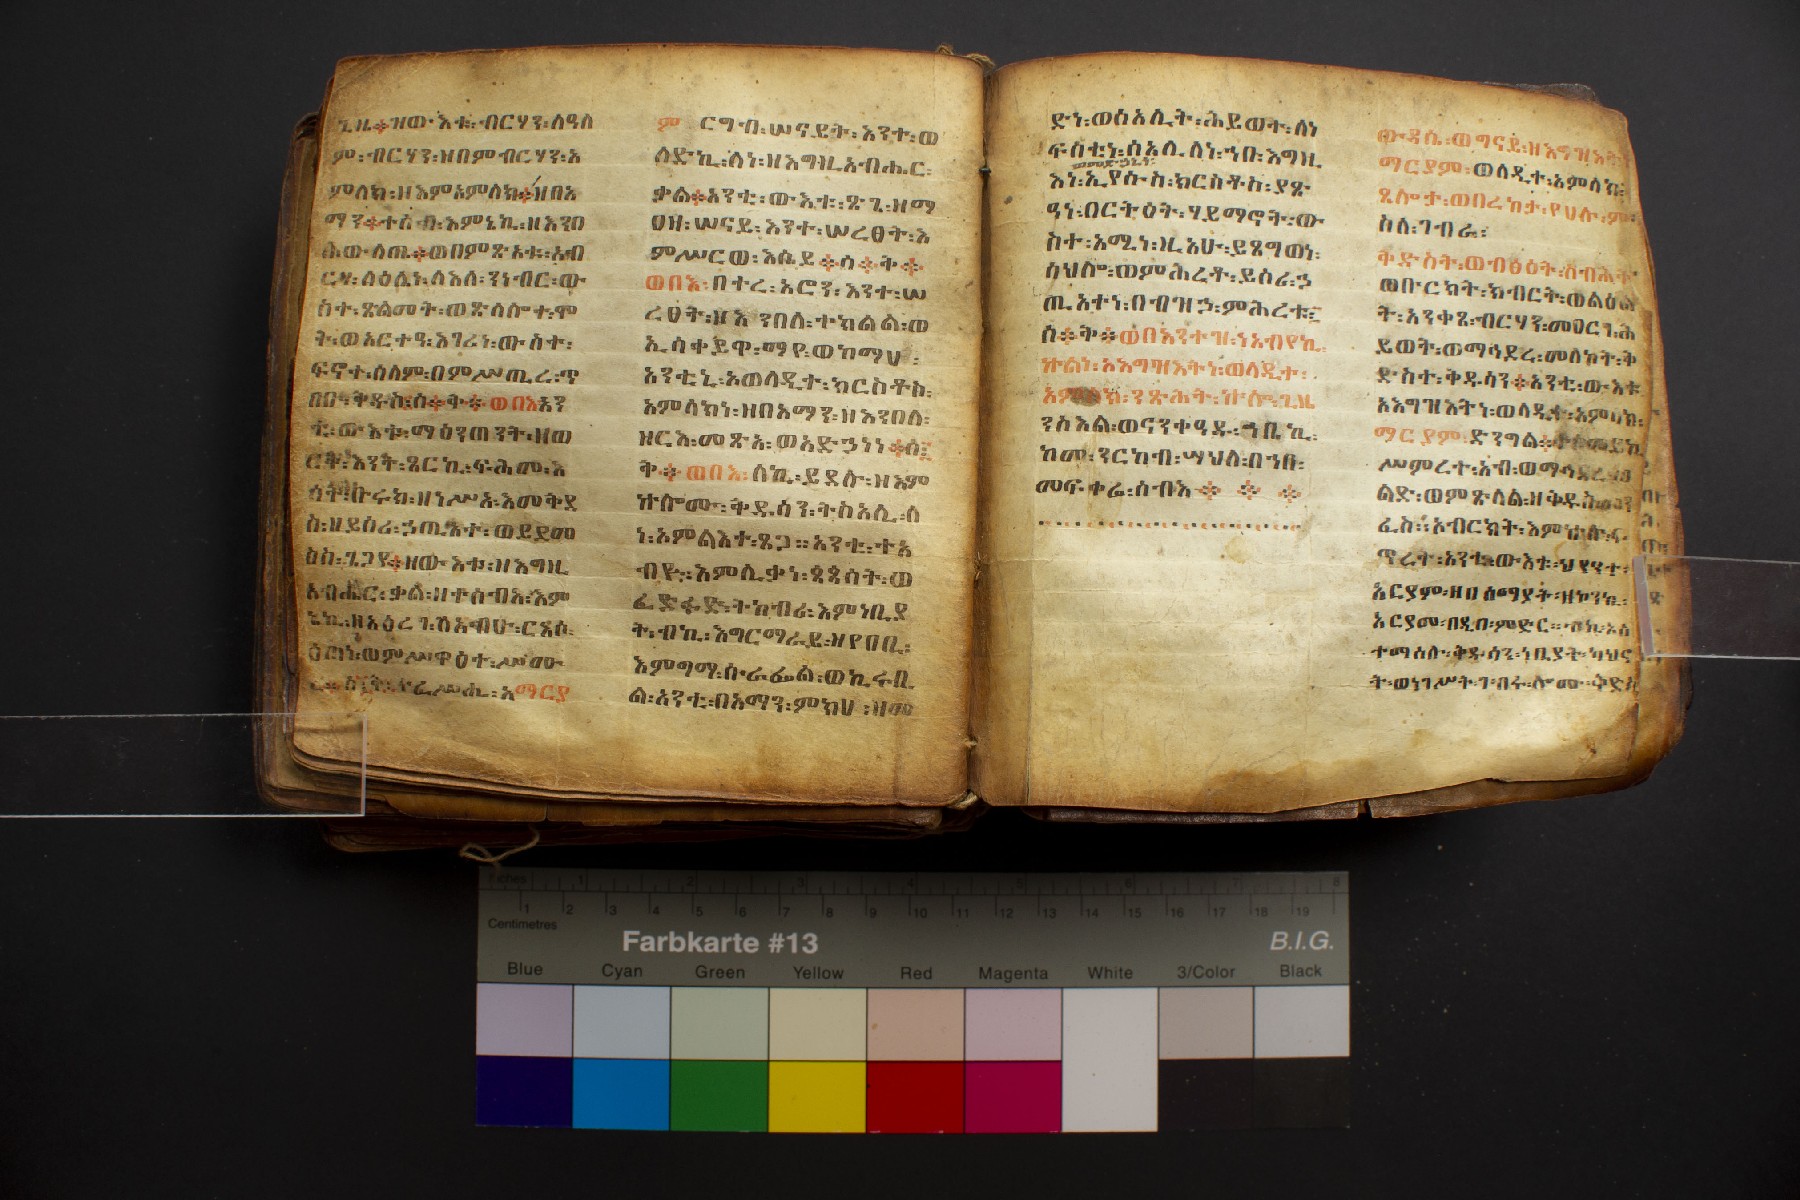 ጊዜ፡ዝው እቱ፡ብርሃን፡ለዓለ
ም፡ብርሃን፡ዘበምብርሃን፡አ
ምላክ፡ዘእምአምላክ፡ዘበአ
ማን፡ተሰብ፡እምኔኪ፡ዘእንበ
ሕውላጤ፡ወበምጽአቱ፡አብ
ርሃ፡ለዕሌነ፡ለእለ፡ንነብር፡ው
ስተ፡ጽልመት፡ወጽላሎተ፡ሞ
ት፡ወአርተዓ፡እገሪነ፡ውስተ፡
ፍኖተ፡ሰላም፡በምሥጢረ፡ጥ
በቡ፡ቅዱስ፡ስ፡ቅ፡ወበእ፡አን
ቲ፡ውእቱ፡ማዕንጠንት፡ዘወ
ርቅ፡እንተ፡ጾርኪ፡ፍሕመ፡እ
ሳት፡ቡሩክ፡ዘነሥአ፡እመቅደ
ስ፡ዘይሰሪ፡ኃጢአተ፡ወይደመ
ስስ፡ጌጋየ፡ዘው እቱ፡ዘእግዚ
አብሔር፡ቃል፡ዘተሰብአ፡እም
ኔኪ፡ዘአዕረገ፡ለአብሁ፡ርእሶ፡
ዕጣነ፡ወምሥዋዕተ፡ሥሙ
ማርያ
ም ርግብ፡ሠናይት፡እንተ፡ወ
ለድኪ፡ለነ፡ዘእግዚአብሔር፡
ቃል፡አንቲ፡ውእቱ፡ጽጌ፡ዘማ
ዐዛ፡ሠናይ፡እንተ፡ሠረፀት፡እ
ምሥርወ፡እሴይ፡ስ፡ቅ፡
ወበእ፡በተረ፡አሮን፡እንተ፡ሠ
ረፀት፡ዘእንበለ፡ተከልል፡ወ
ኢሰቀይዋ፡ማየ፡ወከማሀ፡
አንቲኒ፡አወላዲተ፡ክርስቶስ፡
አምላክነ፡ዘበአማን፡ዘእንበለ፡
ዘርእ፡መጽአ፡ወአድኃነነ፡ስ፡
ቅ፡ወበእ፡ለኪ፡ይደሉ፡ዘእም
ኵሎሙ፡ቅዱሳን፡ትስአሊ፡ለ
ነ፡ኦምልእተ፡ጸጋ፡፡አንቲ፡ተአ
ብዪ፡እምሊቃነ፡ጳጳሳት፡ወ
ፈድፋድ፡ትከብሪ፡እምነቢያ
ት፡ብኪ፡እግርማራይ፡ዘየዐቢ፡
እምግማ፡ሱራፌል፡ወኪሩቤ
ል፡አንቲ፡በአማን፡ምክህ፡ዘመ
ድነ፡ወሰአሊት፡ሕይወተ፡ለነ
ፍስቲነ፡ሰአሊ፡ለነ፡ኀበ፡እግዚ
ወመድኃኒነ
እነ፡ኢየሱስ፡ክርስቶስ፡ያጽ
ዓነ፡በርትዕት፡ሃይማኖት፡ው
ስተ፡አሚነ፡ዚአሁ፡ይጸግወነ፡
ሣህሎ፡ወምሕረቶ፡ይስራኃ
ጢአተነ፡በብዝኃ፡ምሕረቱ፡
ስ፡ቅ፡ወበእንተዝ፡ነአብየኪ፡
ኵልነ፡እአግዝእትነ፡ወላዲተ፡
አምላክ፡ንጽሕት፡ኵሎ፡ጊዜ
ንስእል፡ወናንቀዓዱ፡ኀቤኪ፡
ከመ፡ንርከብ፡ሣህለ፡በኀበ፡
መፍቀሬ፡ሰብእ
ውዳሴ፡ወግናይ፡ዘእግዝእት
ማርያም፡ወላዲተ፡አምላክ፡
ጸሎታ፡ወበረከታ፡የሀሉ፡ም
ስለ፡ገብራ፡
ቅድስት፡ወብፅዕት፡ስብሕት
ወቡርክት፡ክብርት፡ወልዕል
ት፡አንቀጸ፡ብርሃን፡መዐርገ፡ሕ
ይወት፡ወማኅደረ፡መለኮት፡ቅ
ድስተ፡ቅዱሳን፡አንቲ፡ውእቱ
አእግዝእትነ፡ወላዲተ፡አምላክ፡
ማርያም፡ድንግል፡
ሥምረተ፡አብ፡ወማኅደረ፡
ልድ፡ወምጽላል፡ዘቅዱስ፡መን
ፈስ፡፡አብርክት፡እምኵሉ፡ፍ
ጥረት፡አንቲ፡ውእቱ፡ህየንተ፡
አርያም፡ዘበሰማያት፡ዘኮንኪ፡
አርያመ፡በዲበ፡ምድር፡፡ብኪ፡አስ
ተማሰሉ፡ቅዱሳን፡ነቢያት፡ካህና
ት፡ወነገሥት፡ገብሩ፡ሎሙ፡ቅድ
Inches 1 2 3 4 5 6 7 8
Centimetres 1 2 3 4 5 6 7 8 9 10 11 12 13 14 15 16 17 18 19
Farbkarte #13 B.I.G.
Blue Cyan Green Yellow Red Magenta White 3/Color Black